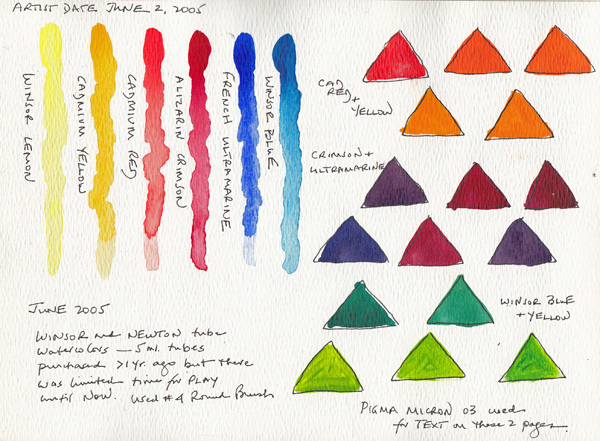 ARTIST DATE JUNE 2, 2005
WINSOR LEMON
CADMIUM YELLOW
CADMIUM RED
ALIZARIN CRIMSON
FRENCH ULTRAMARINE
WINSOR BLUE
CAD
RED +
YELLOW
CRIMSON +
ULTRAMARINE
WINSOR BLUE
+ YELLOW
JUNE 2005
WINSOR and NEWTON tube
watercolors — 5 ml. tubes
purchased >1 yr. ago but there
was limited time for PLAY
until NOW. used #4 Round Brush
PIGMA MICRON 03 used
for TEXT on these 2 pages.